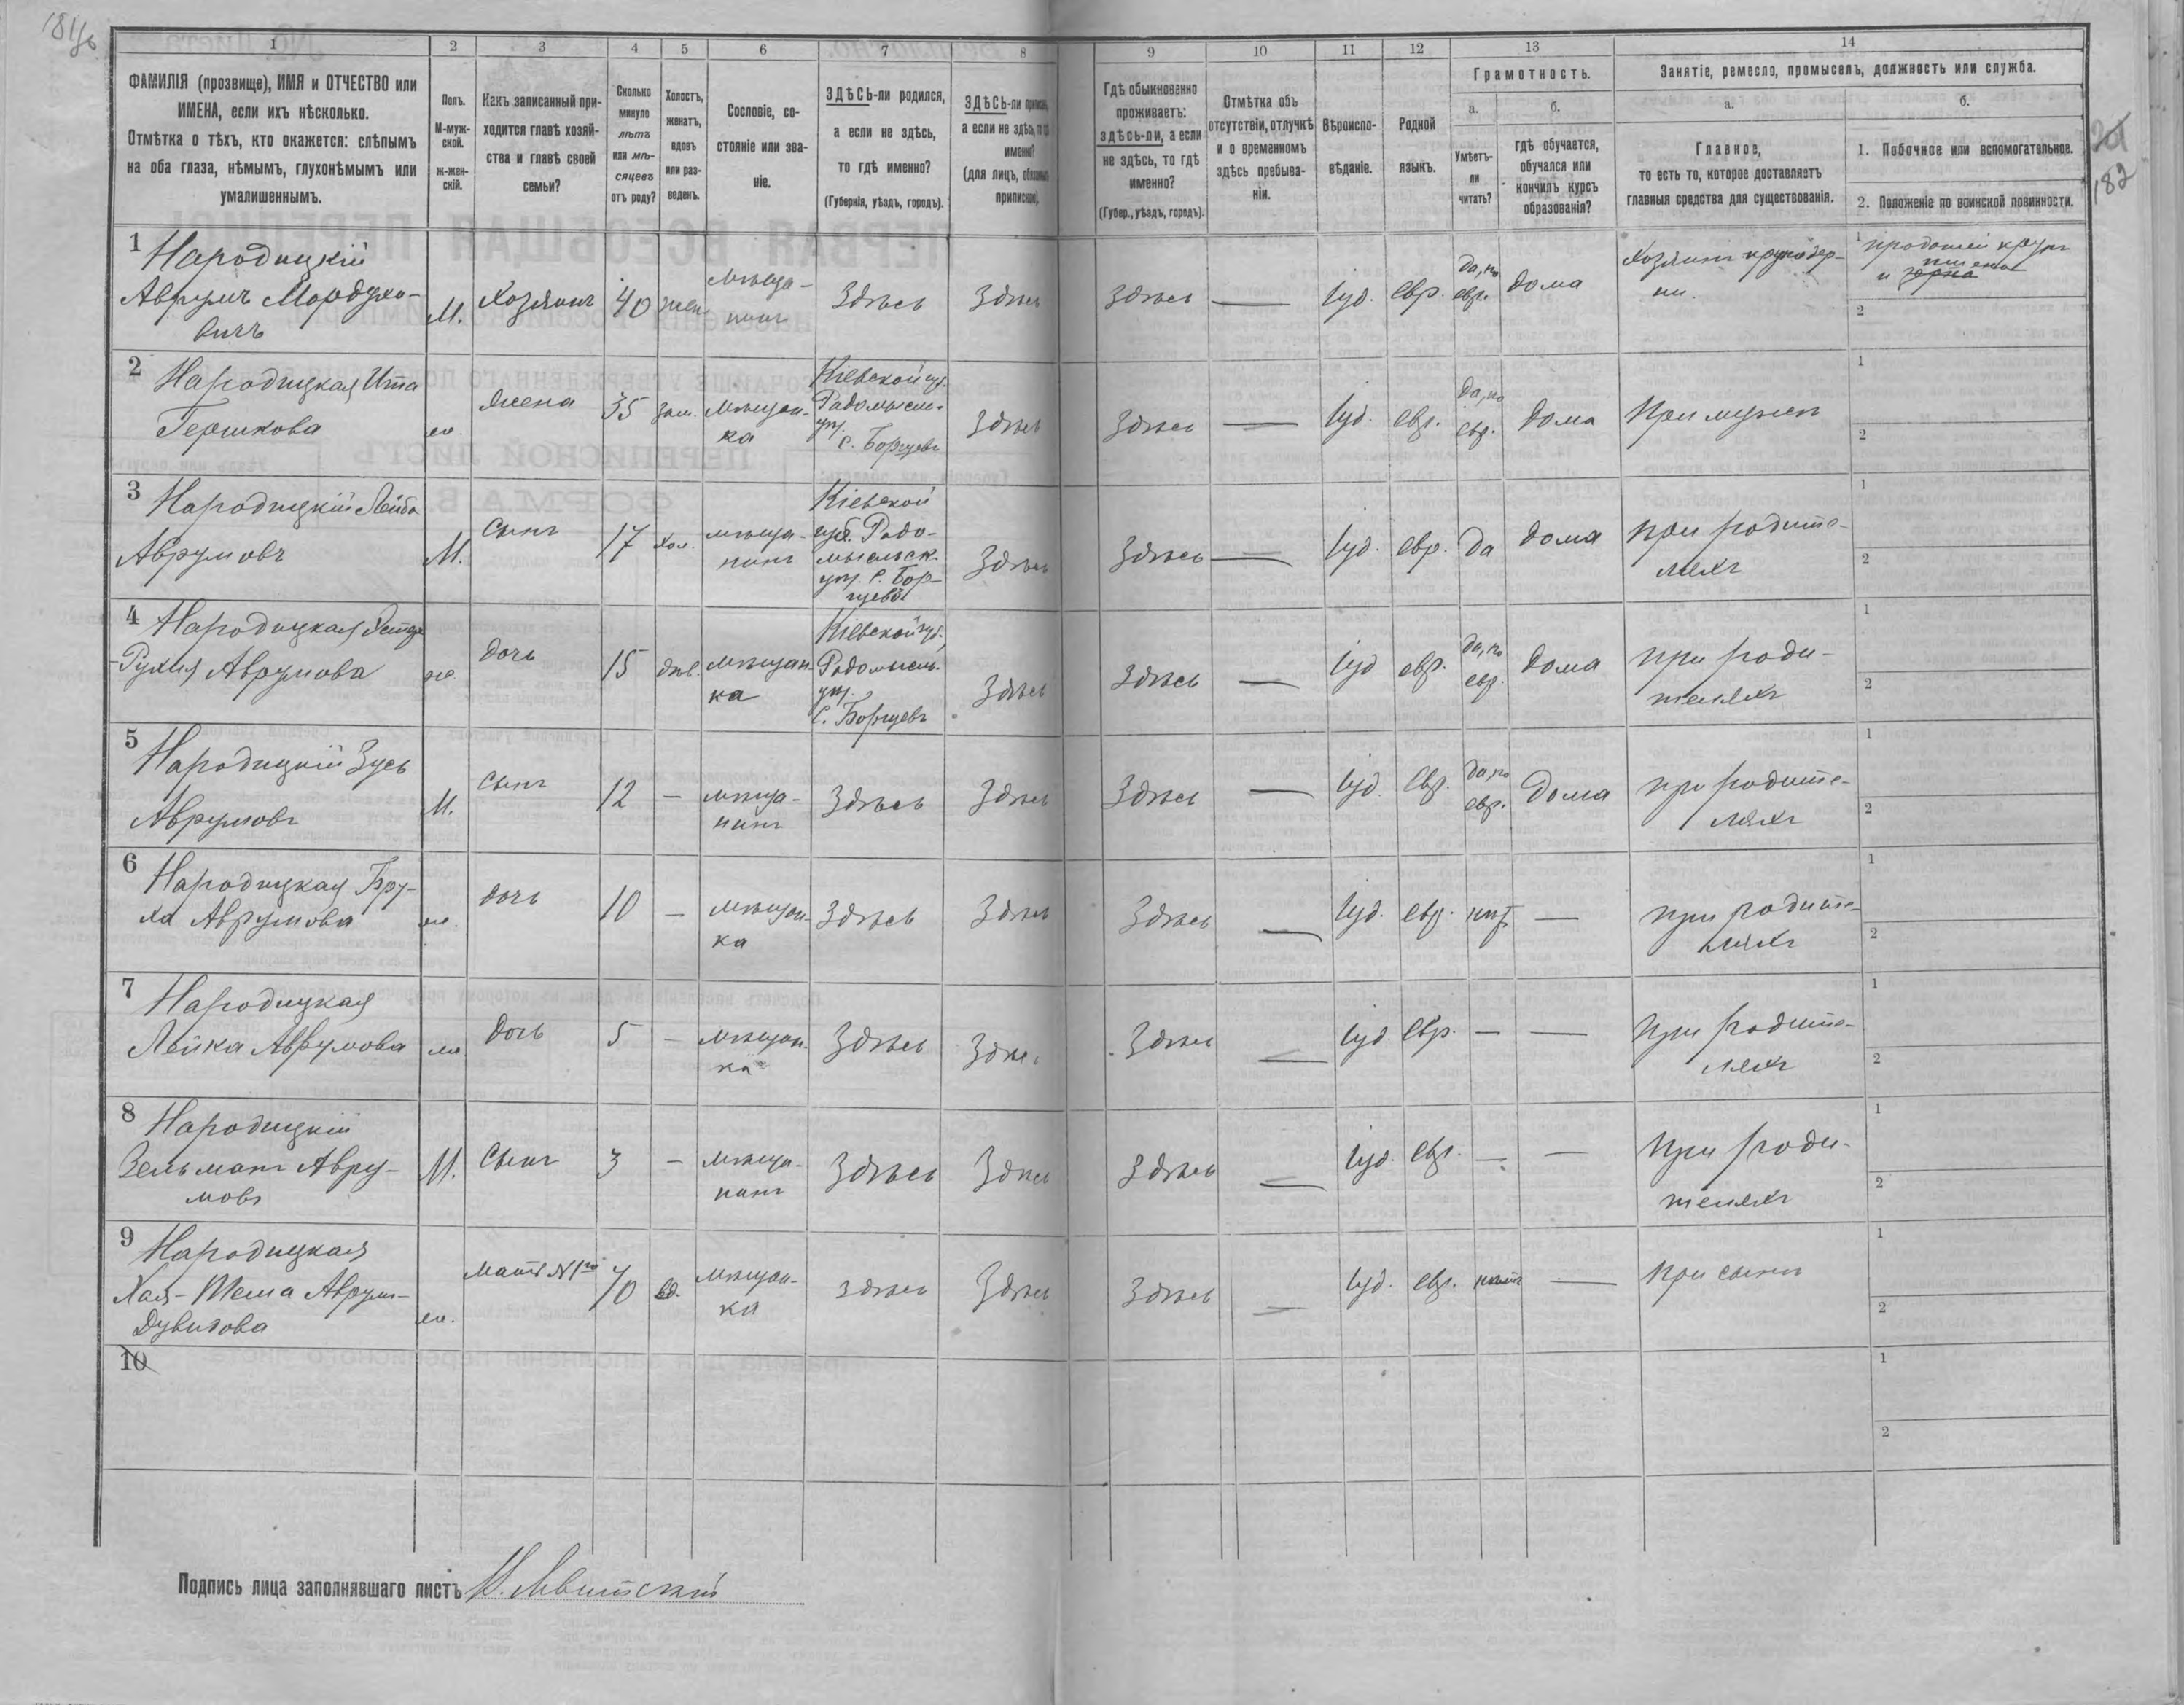 181 об
182
1 2 3 4 5 6 7 8 9 10 11 12 13 14
ФАМИЛІЯ (прозвище), ИМЯ и ОТЧЕСТВО или
ИМЕНА, если ихъ нѣсколько.
Отмѣтка о тѣхъ, кто окажется: слѣпымъ
на оба глаза, нѣмымъ, глухонѣмымъ или
умалишеннымъ.
Полъ.
М-муж-
ской.
ж-жен-
скій.
Какъ записанный при-
ходится главѣ хозяй-
ства и главѣ своей
семьи?
Сколько
минуло
лѣтъ
или мѣ-
сяцевъ
отъ роду?
Холостъ,
женатъ,
вдовъ
или раз-
веденъ.
Сословіе, со-
стояніе или зва-
ніе.
ЗДѢСЬ-ли родился,
а если не здѣсь,
то гдѣ именно?
(Губернія, уѣздъ, городъ).
ЗДѢСЬ-ли
а если не здѣсь,
именно?
(для лицъ,
припискою).
Гдѣ обыкновенно
проживаетъ:
здѣсь-ли, а если
не здѣсь, то гдѣ
именно?
(Губер., уѣздъ, городъ).
Отмѣтка объ
отсутствіи, отлучкѣ
и о временномъ
здѣсь пребыва-
ніи.
Вѣроиспо-
вѣданіе.
Родной
языкъ.
Грамотность.
а.
Умѣетъ-
ли
читать?
б.
гдѣ обучается,
обучался или
кончилъ курсъ
образованія?
Занятіе, ремесло, промыселъ, должность или служба.
а.
Главное,
то есть то, которое доставляетъ
главныя средства для существованія.
б.
1. Побочное или вспомогательное.
2. Положеніе по воинской повинности.
1 Народицкій
Аврумъ Мордухо-
вичъ
М.
Хозяинъ
40
жен
мѣща-
нинъ
Здѣсь
Здѣсь
Здѣсь
—
Іуд.
евр.
да, по
евр.
дома
Хозяинъ круподер-
ни.
1 продажей крупъ
и зерна
пшена
2
2 Народицкая Ита
Гершкова
ж.
жена
35
зам.
мѣщан-
ка
Кіевской губ.
Радомысль.
уѣз.
с. Борщевъ
Здѣсь
Здѣсь
—
Іуд.
евр.
да, по
евр.
дома
При мужѣ
1
2
3 Народицкій Лейба
Аврумовъ
М.
Сынъ
17
хол.
мѣща-
нинъ
Кіевской
губ. Радо-
мысльск.
уѣз. с. Бор-
щевъ
Здѣсь
Здѣсь
—
Іуд.
евр.
да
дома
при родите-
ляхъ
1
2
4 Народицкая
-Рухля Аврумова
ж.
дочь
15
дѣв.
мѣщан-
ка
Кіевской губ.
Радомысль.
уѣз.
с. Борщевъ
Здѣсь
Здѣсь
—
Іуд
евр.
да, по
евр.
дома
при роди-
теляхъ
1
2
5 Народицкій Зусь
Аврумовъ
М.
Сынъ
12
—
мѣща-
нинъ
Здѣсь
Здѣсь
Здѣсь
—
Іуд.
евр.
да, по
евр.
дома
при родите-
ляхъ
1
2
6 Народицкая Бру-
ха Аврумова
ж.
дочь
10
—
мѣщан-
ка
Здѣсь
Здѣсь
Здѣсь
—
Іуд.
евр.
нѣтъ
—
при родите-
ляхъ
1
2
7 Народицкая
Лейка Аврумова
ж
дочь
5
—
мѣщан-
ка
Здѣсь
Здѣсь
Здѣсь
—
Іуд.
евр.
—
—
при родите-
ляхъ
1
2
8 Народицкій
Зельманъ Авру-
мовъ
М.
Сынъ
3
—
мѣща-
нинъ
Здѣсь
Здѣсь
Здѣсь
—
Іуд.
евр.
—
—
при роди-
теляхъ
1
2
9 Народицкая
Хая-Тема Аврум-
Дувидова
ж.
мать №1го
70
вд.
мѣщан-
ка
здѣсь
Здѣсь
Здѣсь
—
Іуд.
евр.
нѣтъ
—
при сынѣ
1
2
10
1
2
Подпись лица заполнявшаго листъ